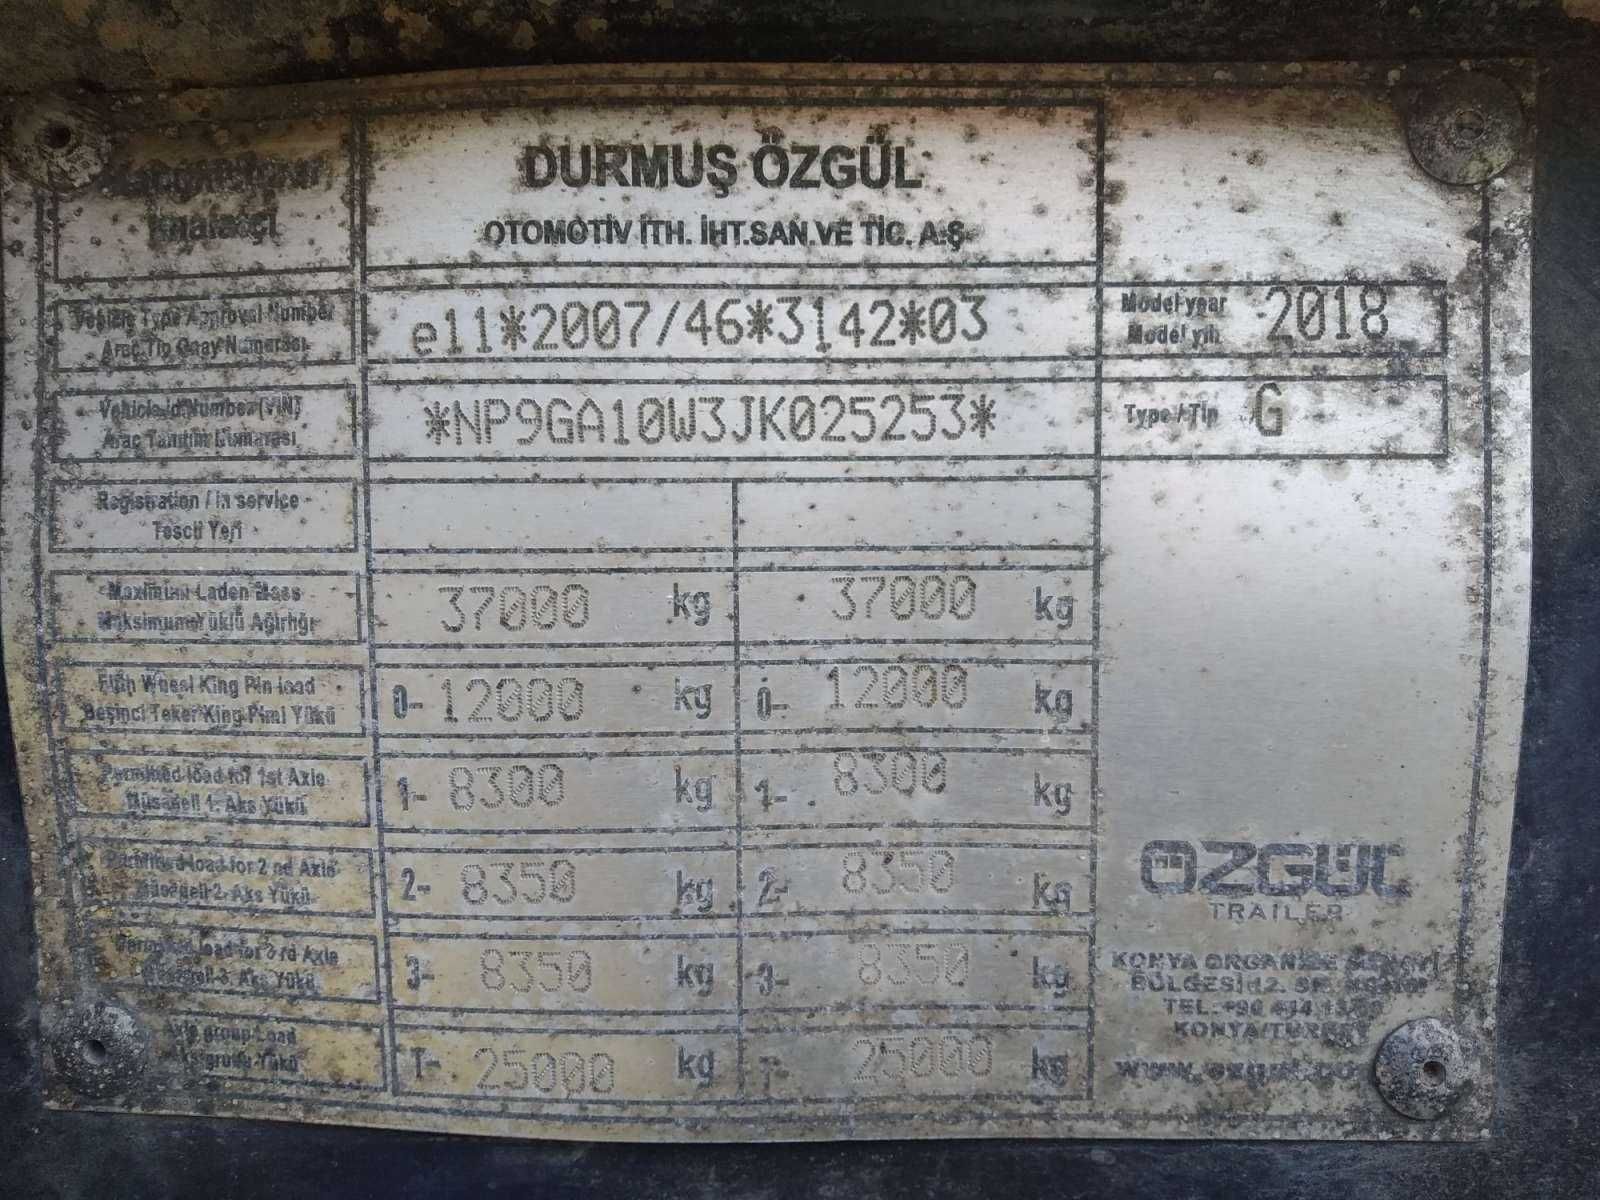 İmalatçı
DURMUŞ ÖZGÜL
OTOMOTİV İTH. İHT.SAN.VE TİC. A.Ş.
Vehicle Type Approval Number
Araç Tip Onay Numarası
e11*2007/46*3142*03
Model year
Model yılı
2018
Vehicle Id Number (VIN)
Araç Tanıtım Numarası
*NP9GA10W3JK025253*
Type / Tip G
Registration / in service
Tescil Yeri
Maximum Laden Mass
Maksimum Yüklü Ağırlığı
37000 kg
37000 kg
Fifth Wheel King Pin load
Beşinci Teker King Pimi Yükü
0- 12000 kg
0- 12000 kg
Permitted load for 1st Axle
Müsadeli 1. Aks Yükü
1- 8300 kg
1- 8300 kg
Permitted load for 2 nd Axle
Müsadeli 2. Aks Yükü
2- 8350 kg
2- 8350 kg
Permitted load for 3 rd Axle
Müsadeli 3. Aks Yükü
3- 8350 kg
3- 8350 kg
Axle group Load
Aks grubu Yükü
T- 25000 kg
T- 25000 kg
ÖZGÜL
TRAİLER
KONYA ORGANİZE SANAYİ
BÖLGESİ 12. SK.
TEL:+90
KONYA/TURKEY